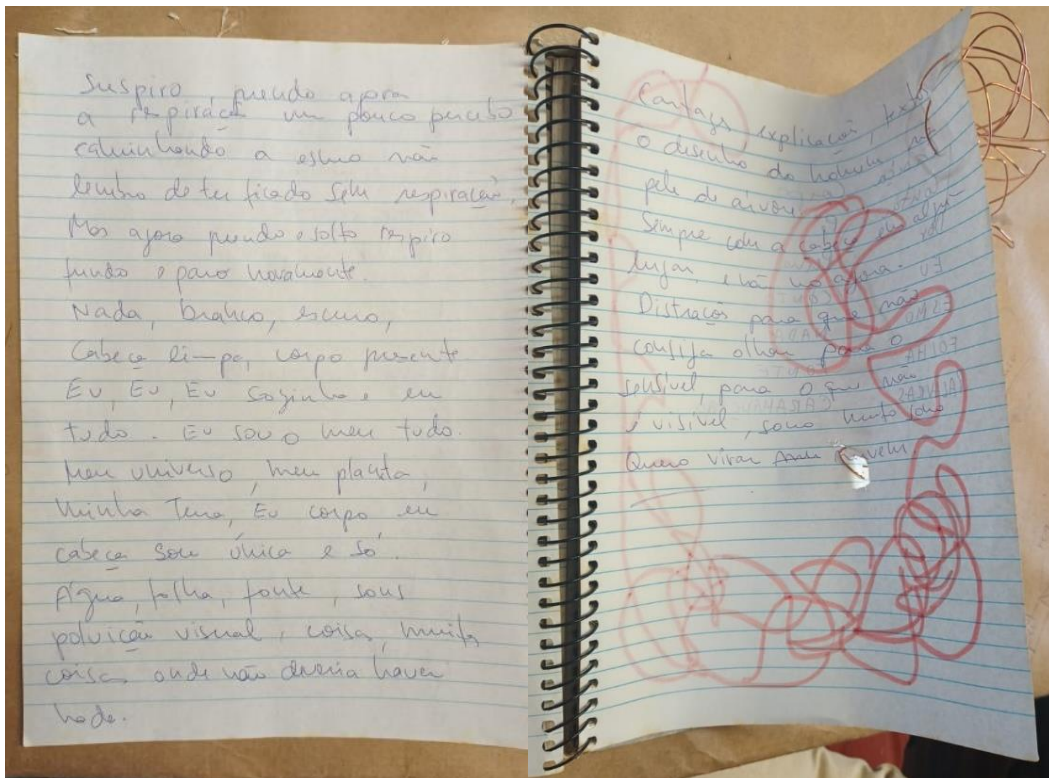 Suspiro, prendo agora
a respiração um pouco percebo
caminhando a esmo não
lembro de ter ficado sem respiração.
Mas agora prendo e solto respiro
fundo e paro novamente.
Nada, branco, escuro,
Cabeça limpa, corpo presente
Eu, Eu, Eu sozinha e eu
tudo. Eu sou o meu tudo.
Meu universo, meu planeta,
Minha Terra, Eu corpo eu
cabeça sou única e só.
Água, folha, fonte, sons
poluição visual, coisa, muita
coisa onde não deveria haver
nada.
explicação, textos
o desenho do homem, na
pele de árvore,
Sempre com a cabeça em algum
lugar, e não no agora.
Distrações para que não
consiga olhar para o
sensível, para o que não
é visível, sono muito sono
Quero virar nuvem